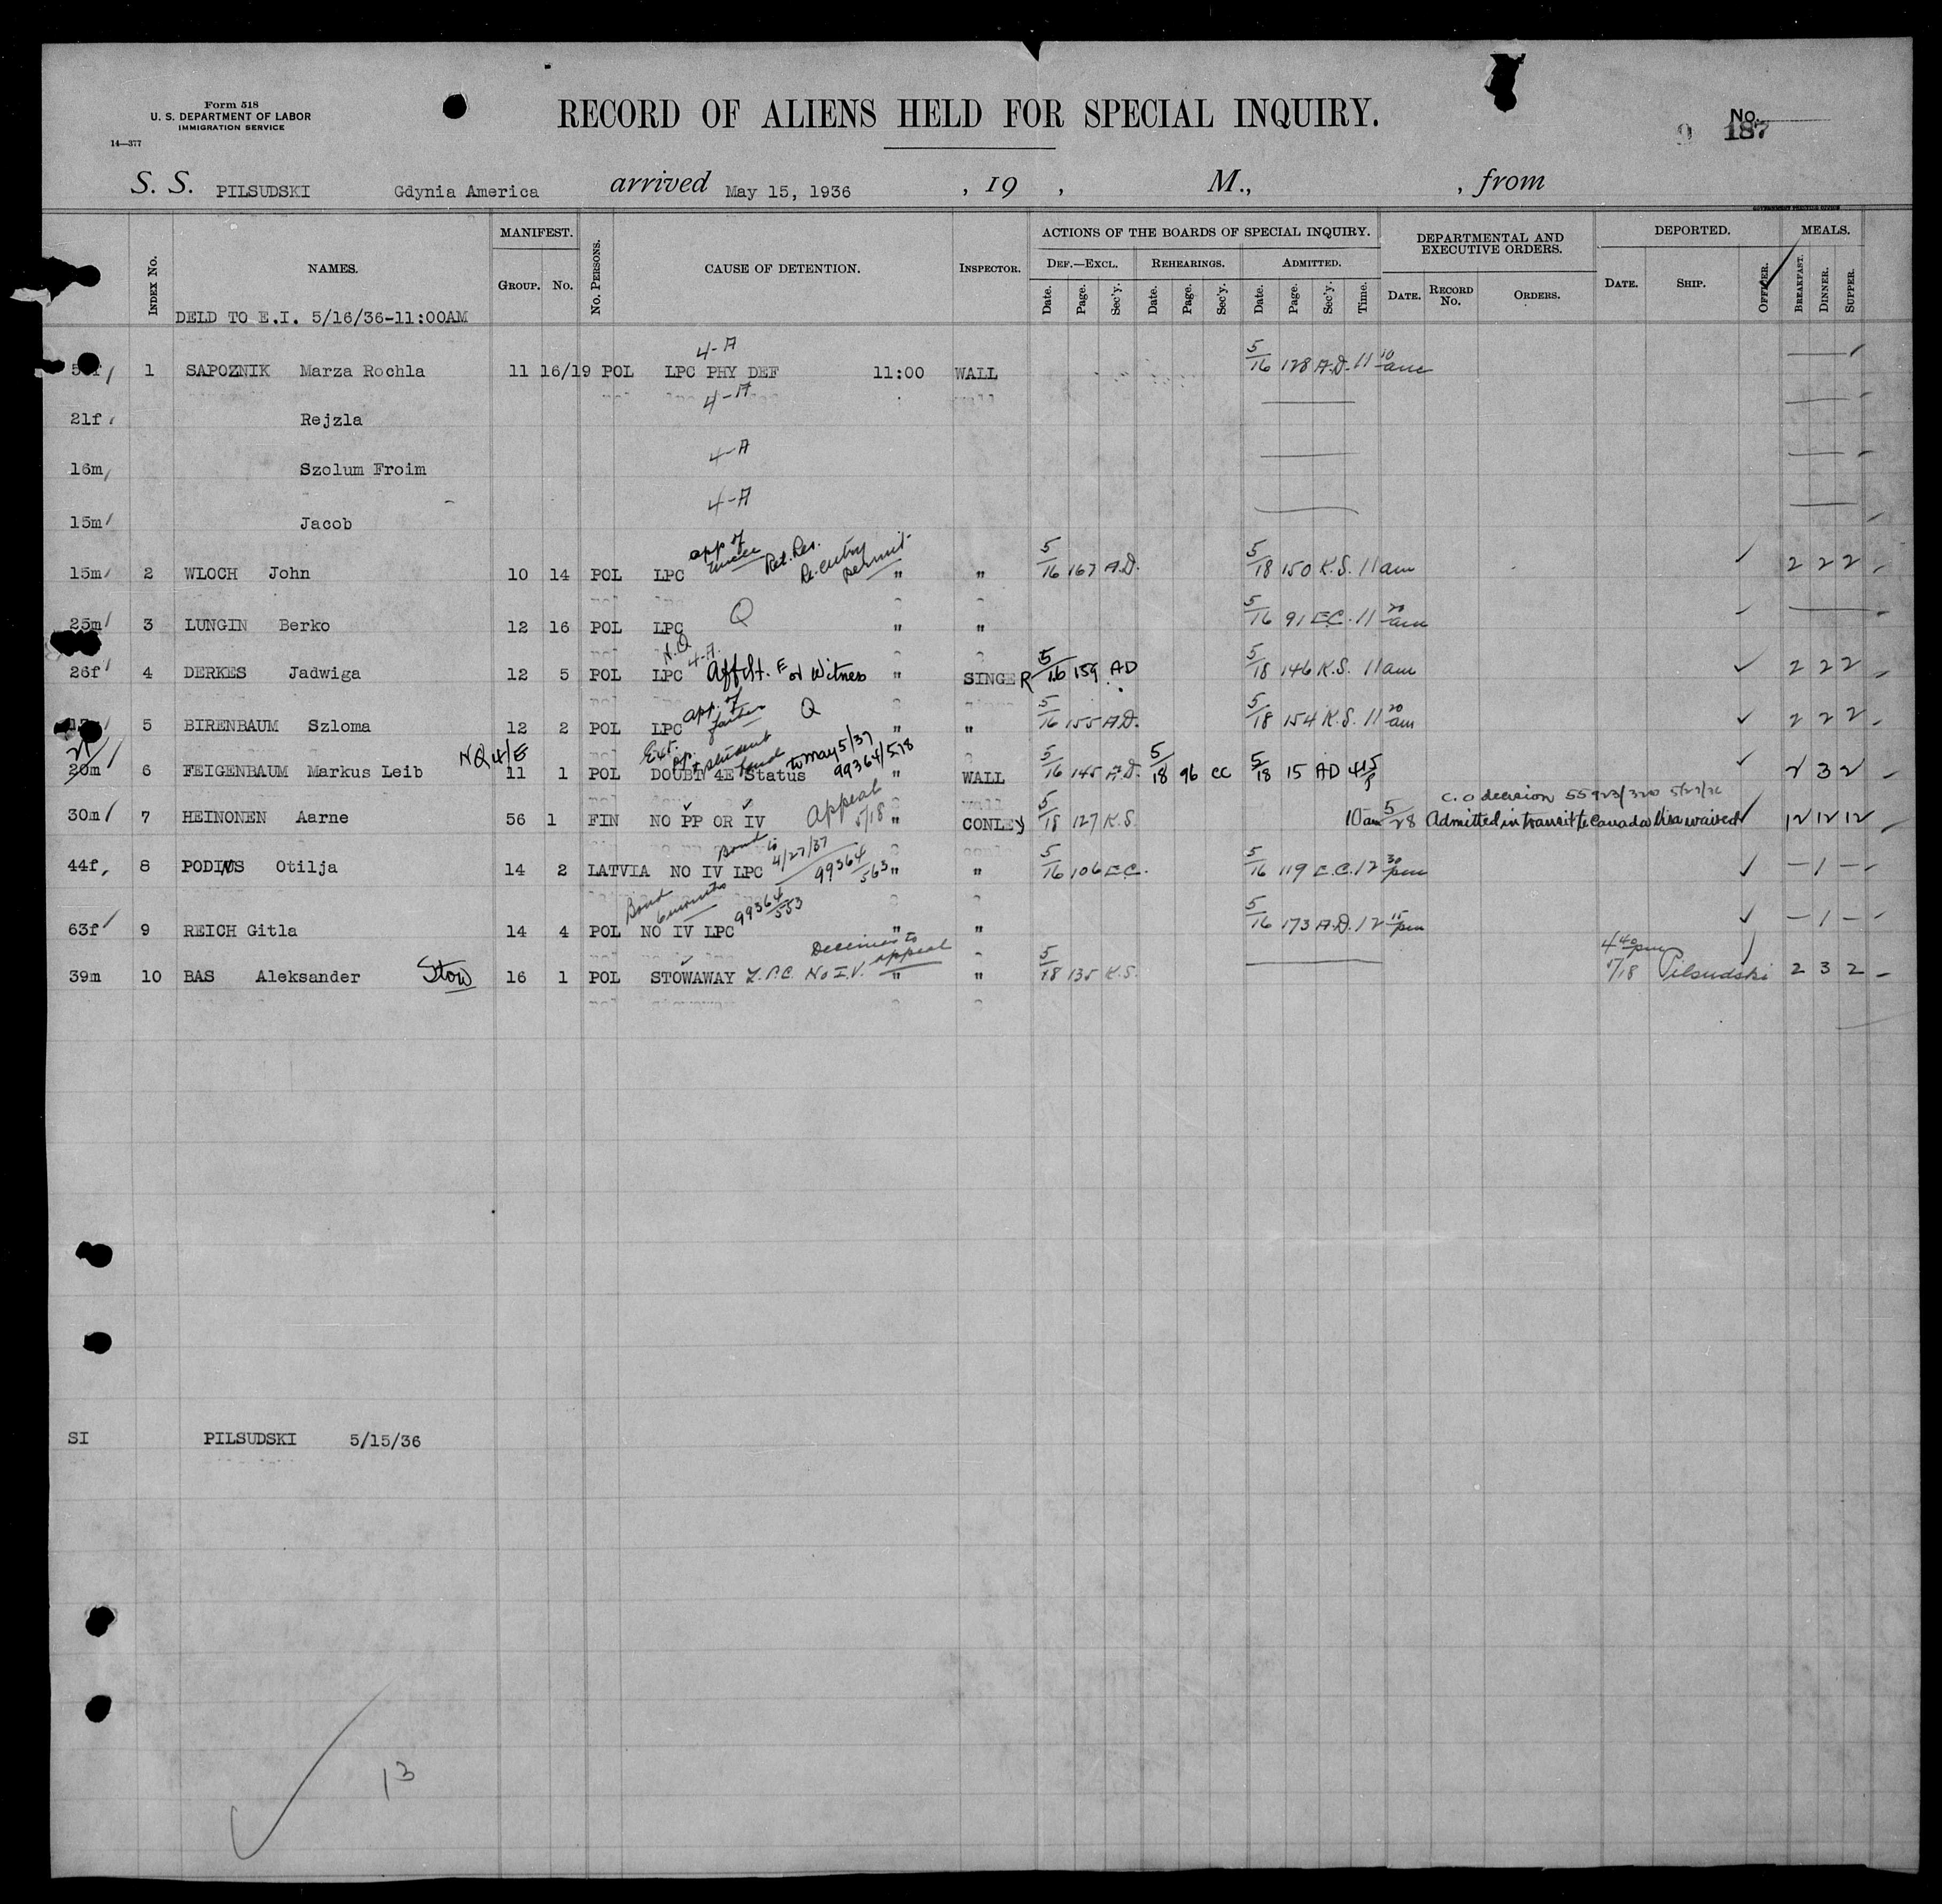 Form 518
U. S. DEPARTMENT OF LABOR
IMMIGRATION SERVICE
14—377
RECORD OF ALIENS HELD FOR SPECIAL INQUIRY.
No.
9 187
S. S. PILSUDSKI Gdynia America arrived May 15, 1936 , 19 , M., , from
GOVERNMENT PRINTING OFFICE
INDEX No. NAMES. MANIFEST. GROUP. No. No. PERSONS. CAUSE OF DETENTION. INSPECTOR. ACTIONS OF THE BOARDS OF SPECIAL INQUIRY. DEF.—EXCL. Date. Page. Sec'y. REHEARINGS. Date. Page. Sec'y. ADMITTED. Date. Page. Sec'y. Time. DEPARTMENTAL AND EXECUTIVE ORDERS. DATE. RECORD No. ORDERS. DEPORTED. DATE. SHIP. OFFICER. MEALS. BREAKFAST. DINNER. SUPPER.
DELD TO E.I. 5/16/36-11:00AM
4-A
1 SAPOZNIK Marza Rochla 11 16/19 POL LPC PHY DEF 11:00 WALL 5/16 128 A.D. 11 10 am
4-A
21f Rejzla
16m Szolum Froim 4-A
15m Jacob 4-A
app of uncle Ret. Res. Re.entry permit
15m 2 WLOCH John 10 14 POL LPC " " 5/16 167 A.D. 5/18 150 K.S. 11 am 2 2 2
25m 3 LUNGIN Berko 12 16 POL LPC Q " " 5/16 91 E.C. 11 20 am
N.Q. 4-A.
26f 4 DERKES Jadwiga 12 5 POL LPC Affdt. E or Witness " SINGER 5/16 159 AD 5/18 146 K.S. 11 am 2 2 2
app. of father Q
5 BIRENBAUM Szloma 12 2 POL LPC " " 5/16 155 A.D. 5/18 154 K.S. 11 20 am 2 2 2
21 NQ 4/E Ext. student to May 5/37 99364/578
20m 6 FEIGENBAUM Markus Leib 11 1 POL DOUBT 4E Status " WALL 5/16 145 A.D. 5/18 96 EC 5/18 15 AD 4 15 2 3 2
Appeal 5/18 C.O decision 55923/320 5/27/36
30m 7 HEINONEN Aarne 56 1 FIN NO PP OR IV " CONLEY 5/18 127 K.S. 10 am 5/28 Admitted in transit to Canada Visa waived 12 12 12
Bond to 4/27/37 99364/563
44f 8 PODINS Otilja 14 2 LATVIA NO IV LPC " " 5/16 106 E.C. 5/16 119 E.C. 12 30 pm — 1 —
Bond 6 months 99364/553
63f 9 REICH Gitla 14 4 POL NO IV LPC " " 5/16 173 A.D. 12 15 pm — 1 —
Stow Declines to appeal 4 40 pm
39m 10 BAS Aleksander 16 1 POL STOWAWAY L.P.C. No I.V. " " 5/18 135 K.S. 5/18 Pilsudski 2 3 2
SI PILSUDSKI 5/15/36
13